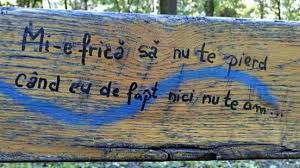 Mi-e frică să nu te pierd
când eu de fapt nici nu te am...